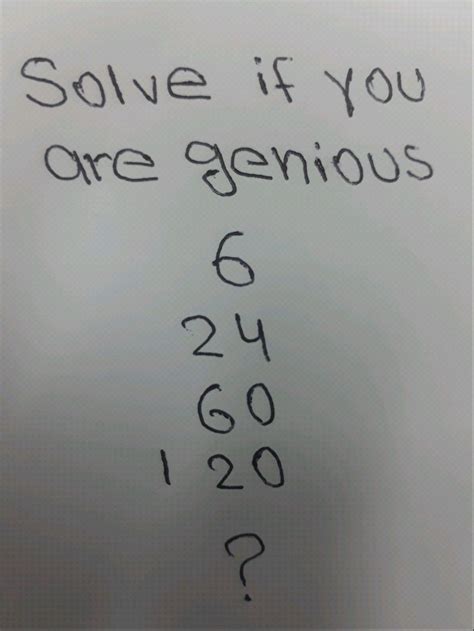 Solve if you
are genious
6
24
60
120
?